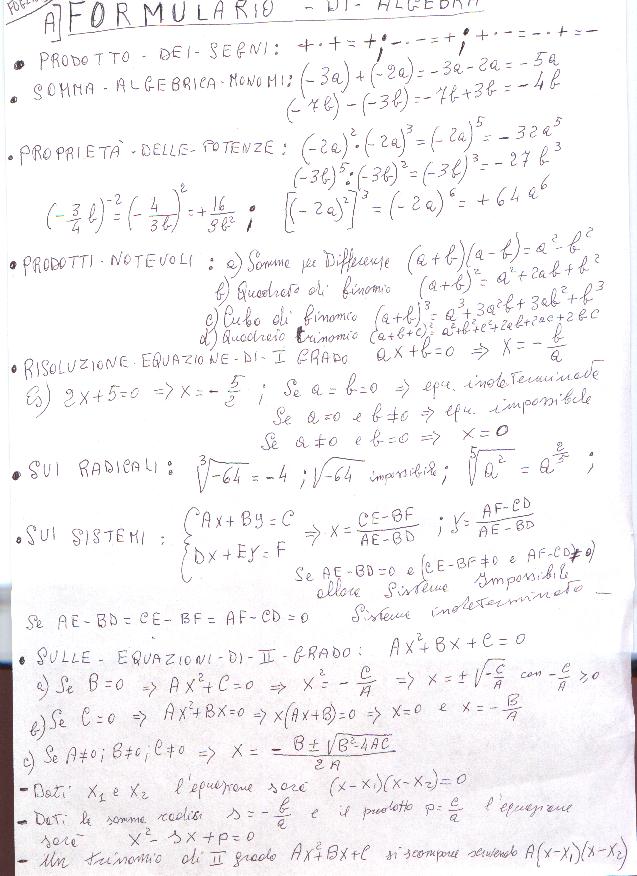 A] FORMULARIO - DI - ALGEBRA
• PRODOTTO - DEI - SEGNI: + · + = + ; - · - = + ; + · - = - · + = -
• SOMMA - ALGEBRICA - MONOMI: (-3a) + (-2a) = -3a - 2a = -5a
(-7b) - (-3b) = -7b + 3b = -4b
• PROPRIETÀ - DELLE - POTENZE: (-2a)² · (-2a)³ = (-2a)⁵ = -32a⁵
(-3b)⁵ : (-3b)² = (-3b)³ = -27b³
(-3/4 b)⁻² = (-4/3b)² = +16/9b² ; [(-2a)²]³ = (-2a)⁶ = +64a⁶
• PRODOTTI - NOTEVOLI: a) Somma per Differenza (a+b)(a-b) = a² - b²
b) Quadrato di binomio (a+b)² = a² + 2ab + b²
c) Cubo di binomio (a+b)³ = a³ + 3a²b + 3ab² + b³
d) Quadrato trinomio (a+b+c)² = a²+b²+c²+2ab+2ac+2bc
• RISOLUZIONE - EQUAZIONE - DI - I GRADO ax+b=0 ⇒ x = -b/a
Es) 2x+5=0 ⇒ x = -5/2 ; Se a=b=0 ⇒ equ. indeterminata
Se a=0 e b≠0 ⇒ equ. impossibile
Se a≠0 e b=0 ⇒ x=0
• SUI RADICALI: ³√-64 = -4 ; √-64 impossibile ; ⁵√a² = a^(2/5) ;
• SUI SISTEMI: { Ax+By=C ⇒ x = CE-BF/AE-BD ; y = AF-CD/AE-BD
Dx+Ey=F
Se AE-BD=0 e (CE-BF≠0 e AF-CD≠0)
allora Sistema Impossibile
Se AE-BD = CE-BF = AF-CD = 0 Sistema indeterminato -
• SULLE - EQUAZIONI - DI - II - GRADO: Ax²+Bx+C=0
a) Se B=0 ⇒ Ax²+C=0 ⇒ x² = -C/A ⇒ x = ±√-C/A con -C/A ≥0
b) Se C=0 ⇒ Ax²+Bx=0 ⇒ x(Ax+B)=0 ⇒ x=0 e x = -B/A
c) Se A≠0; B≠0; C≠0 ⇒ x = -B±√B²-4AC/2A
- Dati x₁ e x₂ l'equazione sarà (x-x₁)(x-x₂)=0
- Dati la somma radici s = -b/a e il prodotto p = c/a l'equazione
sarà x² - sx + p = 0
- Un trinomio di II grado Ax²+Bx+C si scompone scrivendo A(x-x₁)(x-x₂)